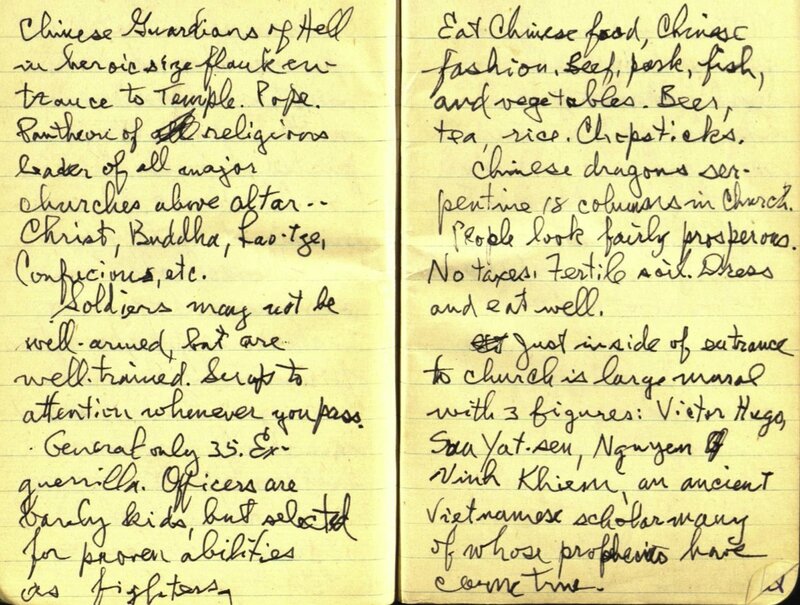 Chinese Guardians of Hell
in heroic size flank en-
trance to Temple. Pope.
Pantheon of religious
leader of all major
churches above altar--
Christ, Buddha, Lao-tze,
Confucious, etc.
Soldiers may not be
well-armed, but are
well-trained. Snap to
attention whenever you pass.
General only 35. Ex-
guerrilla. Officers are
barely kids, but selected
for proven abilities
as fighters.
Eat Chinese food, Chinese
fashion. Beef, pork, fish,
and vegetables. Beer,
tea, rice. Chopsticks.
Chinese dragons ser-
pentine 18 columns in Church.
People look fairly prosperous.
No taxes. Fertile soil. Dress
and eat well.
Just inside of entrance
to church is large mural
with 3 figures: Victor Hugo,
Sun Yat-sen, Nguyen
Vinh Khiem, an ancient
Vietnamese scholar many
of whose prophecies have
come true.